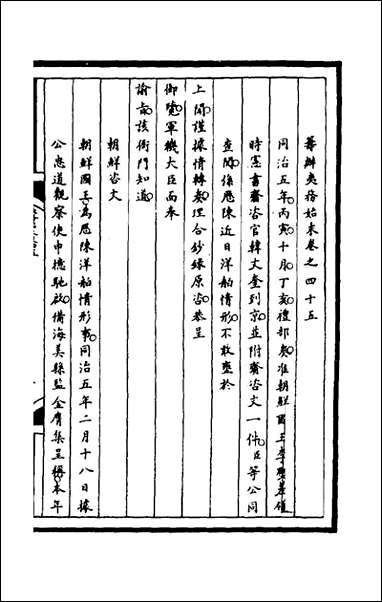 籌辦夷務始末卷之四十五
同治五年丙寅十月丁亥禮部奏准朝鮮國王李 差
時憲書齎咨官韓文奎到京並附齎咨文一件臣等公同
查閱係歷陳近日洋舶情形不敢壅於
上聞謹據情轉奏理合鈔錄原咨恭呈
御覽軍機大臣面奉
諭旨該衙門知道
朝鮮咨文
朝鮮國王為歷陳洋舶情形事同治五年二月十八日據
公忠道觀察使申檍馳啟備海美縣監金膺集呈稱本年